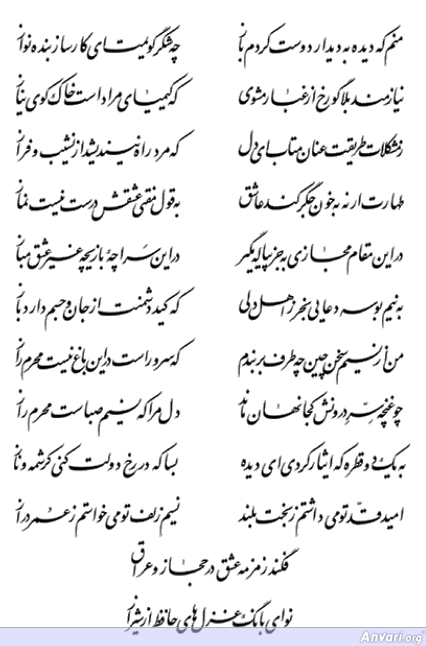 منم که دیده به دیدار دوست کردم باز چه شکر گویمت ای کارساز بنده نواز
نیازمند بلا گو رخ از غبار مشوی که کیمیای مراد است خاک کوی نیاز
ز مشکلات طریقت عنان متاب ای دل که مرد راه نیندیشد از نشیب و فراز
طهارت ار نه به خون جگر کند عاشق به قول مفتی عشقش درست نیست نماز
در این مقام مجازی به جز پیاله مگیر در این سراچهٔ بازیچه غیر عشق مباز
به نیم بوسه دعایی بخر ز اهل دلی که کید دشمنت از جان و جسم دارد باز
من از نسیم سخن چین چه طرف بربندم که سرو راست در این باغ نیست محرم راز
چو غنچه سِرّ درونش کجا نهان ماند دل مرا که نسیم صباست محرم راز
به یک دو قطره که ایثار کردی ای دیده بسا که در رخ دولت کنی کرشمه و ناز
امید قدّ تو می داشتم ز بخت بلند نسیم زلف تو می خواستم ز عمر دراز
فکند زمزمه عشق در حجاز و عراق
نوای بانگ غزل های حافظ از شیراز
Anvari.org